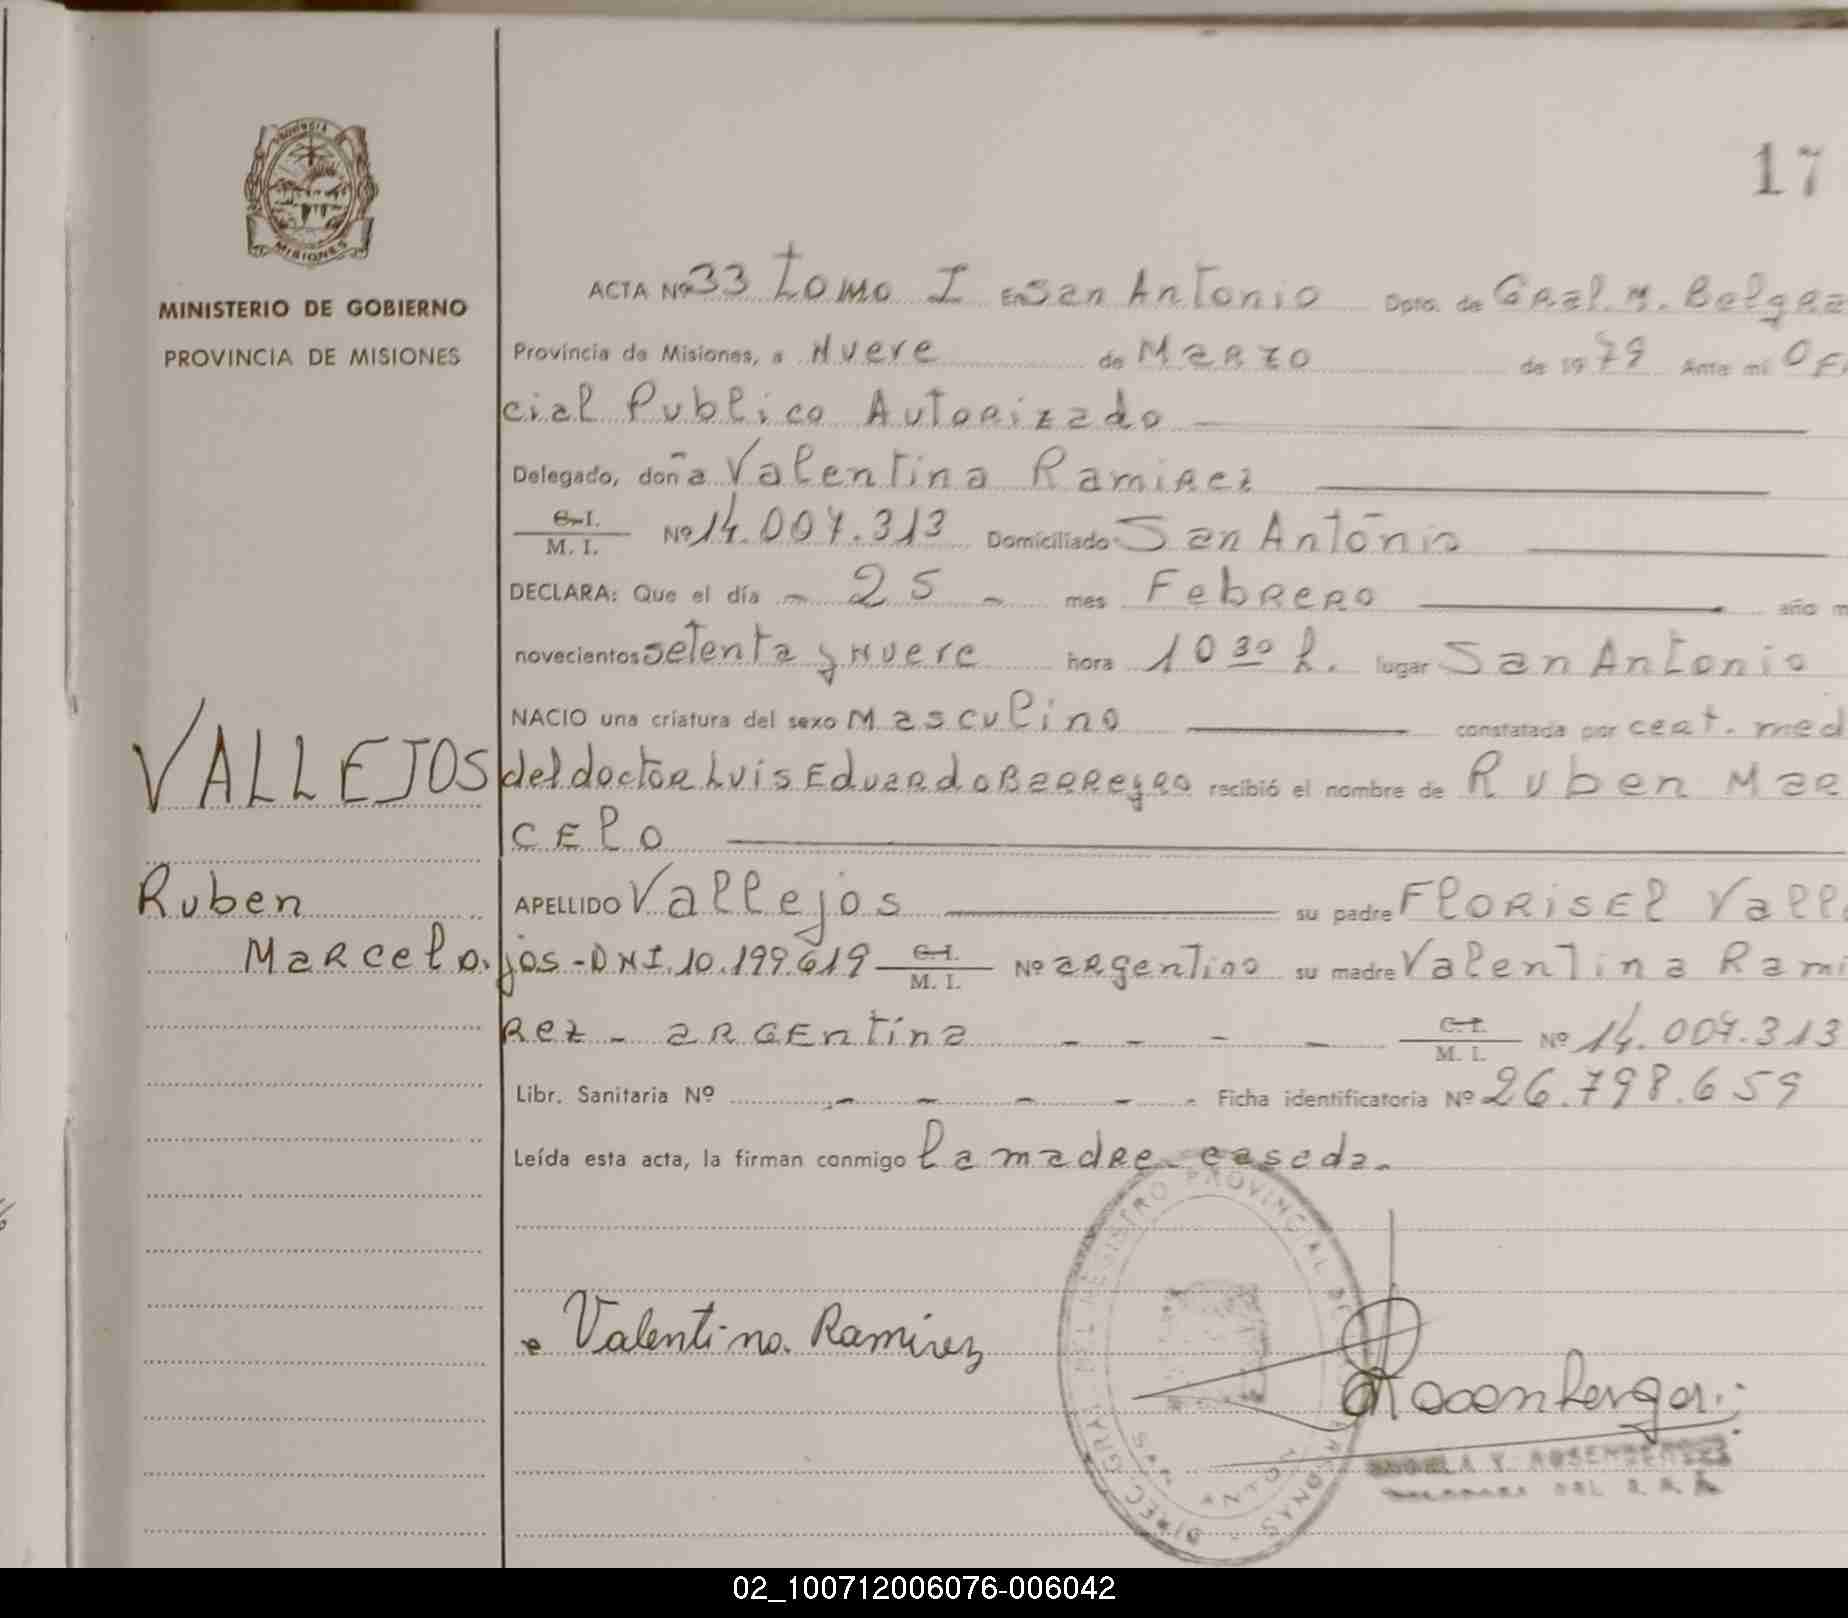 17
PROVINCIA
MISIONES
MINISTERIO DE GOBIERNO
PROVINCIA DE MISIONES
ACTA Nº 33 tomo I En San Antonio Dpto. de Gral. M. Belgra
Provincia de Misiones, a Nueve de Marzo de 1979 Ante mi Ofi
cial Publico Autorizado
Delegado, doña Valentina Ramirez
C.I.
M. I. Nº 14.007.313 Domiciliado San Antonio
DECLARA: Que el día - 25 - mes Febrero año m
novecientos setenta y Nueve hora 10 30 h. lugar San Antonio
NACIO una criatura del sexo Masculino constatada por cert. med
del doctor Luis Eduardo Barreyro recibió el nombre de Ruben Mar
celo
VALLEJOS
Ruben
Marcelo.
APELLIDO Vallejos su padre Florisel Valle
jos - DNI. 10.199.619 C.I.
M. I. Nº argentino su madre Valentina Rami
rez - argentina - - - - C.I.
M. I. Nº 14.007.313
Libr. Sanitaria Nº - - - - - Ficha identificatoria Nº 26.798.659
Leída esta acta, la firman conmigo la madre casada.
Valentina Ramirez
Rosenberger
DIREC. GRAL. DEL REGISTRO PROVINCIAL DE LAS PERSONAS
Y. ROSENBERGER